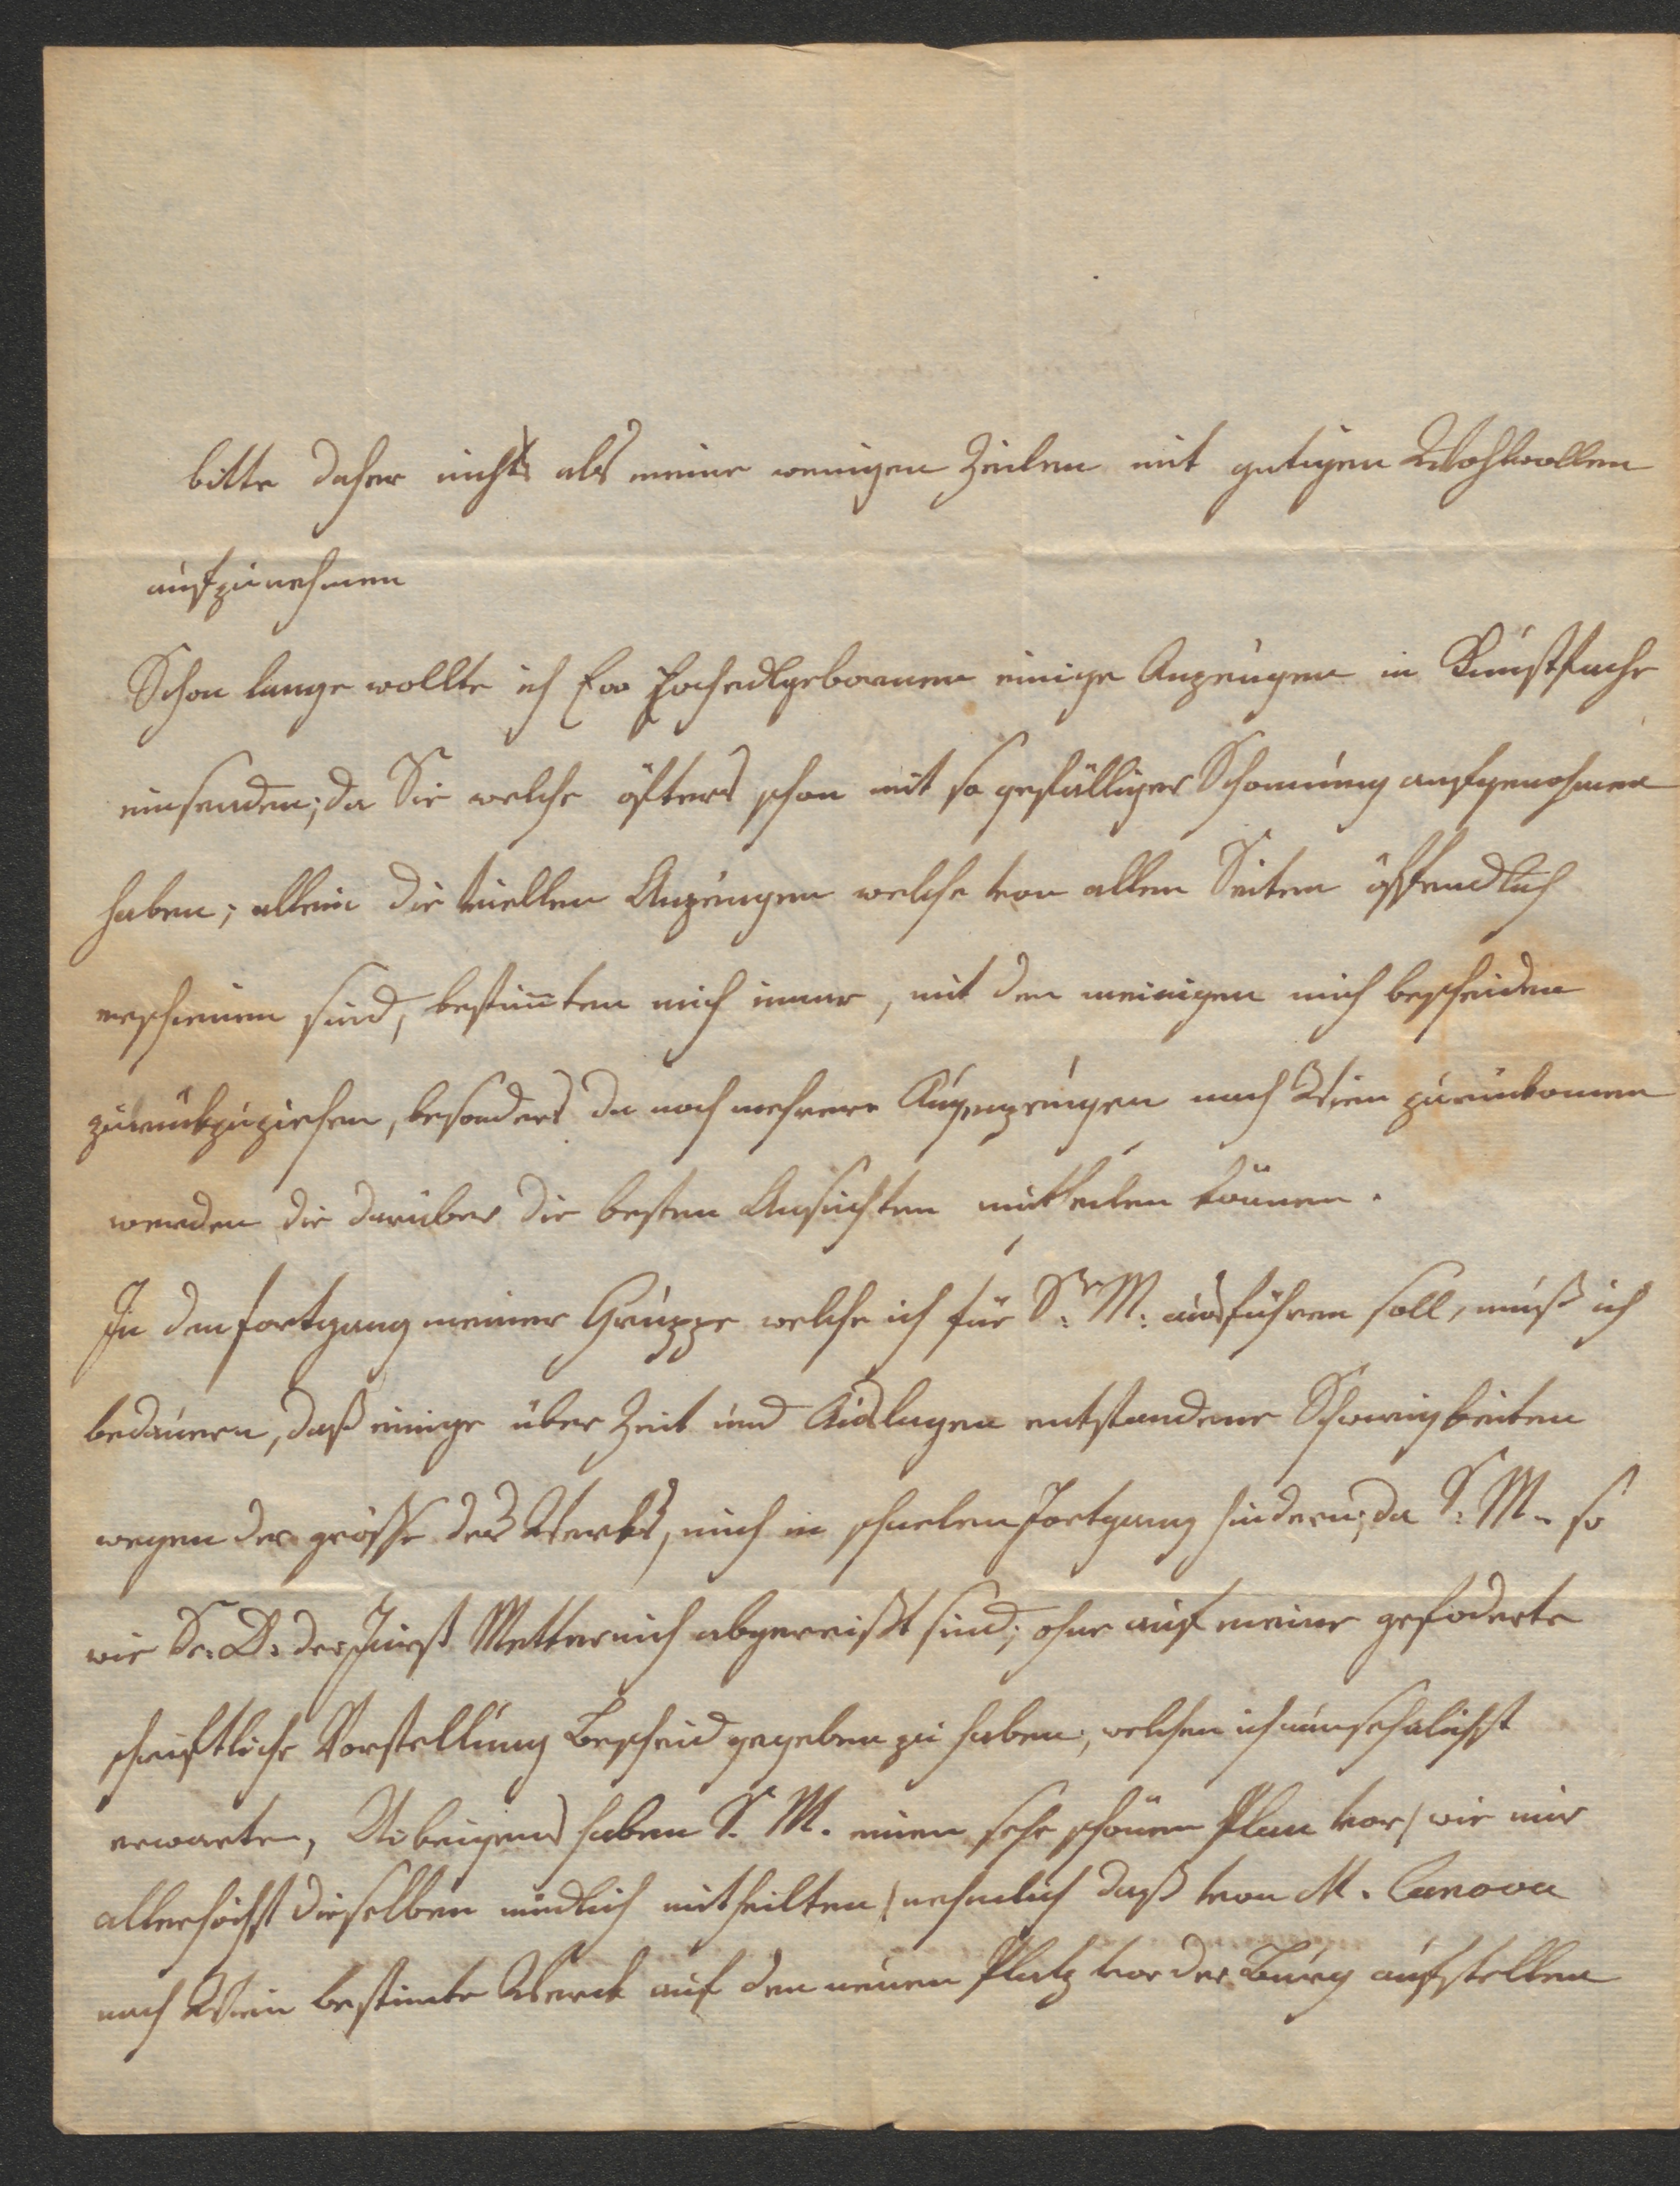 bitte daher nichts als meine wenigen Zeilen mit gutigen Wohlwollen
aufzunehmen
Schon lange wollte ich Ew Hochedlgebornen einige Anzeugen in Kunstfache
einsenden; da Sie welche öfters schon mit so gefälliger Schonung aufgenohmen
haben; allein die viellen Anzeugen welche von allen Seiten öffendlich
erschienen sind, bestim̅ten mich immer, mit den meinigen mich bescheiden
zurückzuziehen, besonders da noch mehrere Augenzeugen nach Wien zurückomen
werden die darüber die besten Ansichten mittheilen können.
In den Fortgang meiner Gruppe welche ich für Sr: M: ausführen soll, muß ich
bedauern, daß einige über Zeit und Auslagen entstandene Schwirigkeiten
wegen der grösse des Werks, mich in schnelen Fortgang hindern; da S: M. so
wie Sr: D: der Fürst Metternich abgereißt sind; ohne auf meine gefoderte
schriftliche Vorstellung Bescheid gegeben zu haben, welchen ich nun sehnlichst
erwarte, Uibrigens haben S. M. einen sehr schönen Plan vor / wie mir
allerhöchst dieselben mündlich mitheilten / nehmlich daß von M. Canova
nach Wien bestimte Werck auf den neuen Platz vor der Burg aufstellen